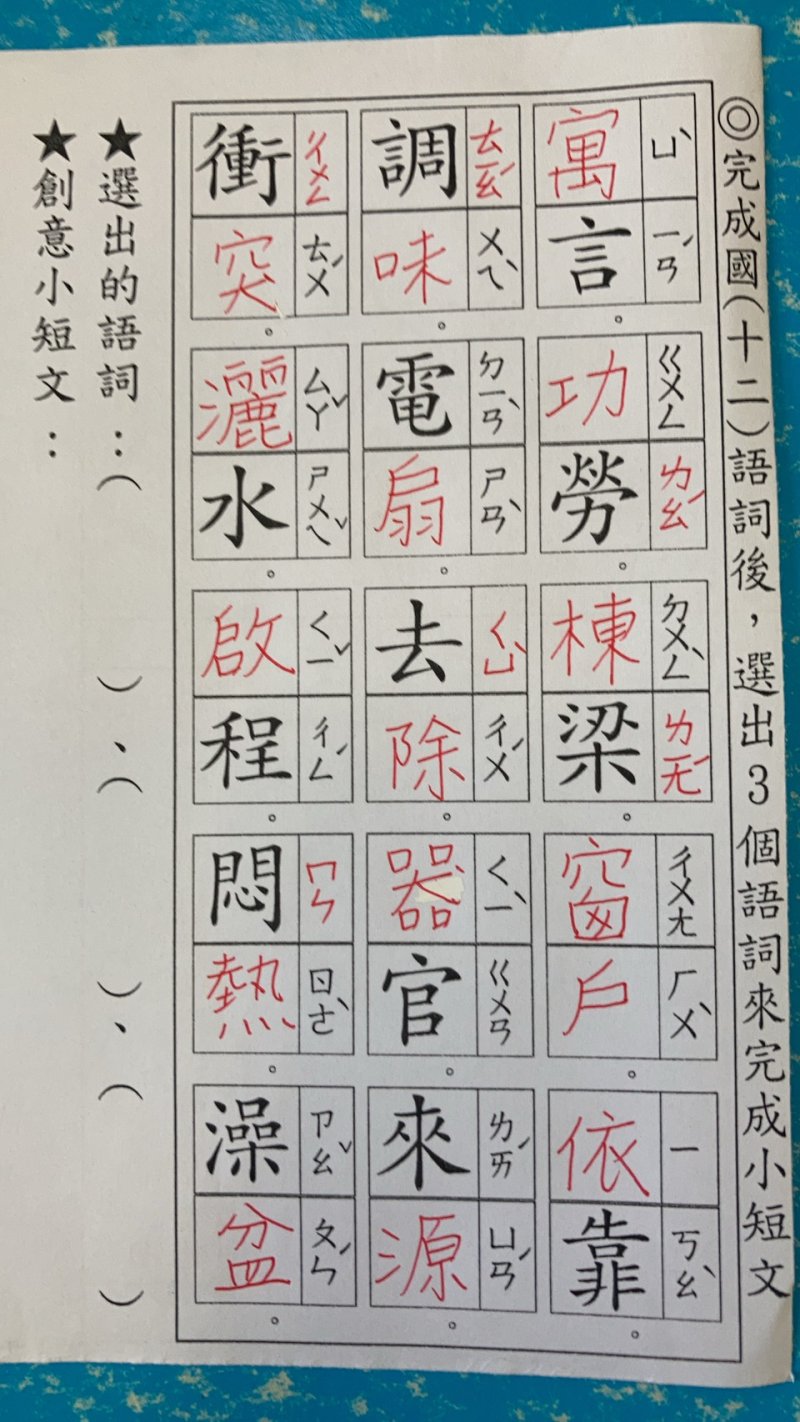 ◎完成國(十二)語詞後，選出3個語詞來完成小短文
寓ㄩˋ言ㄧㄢˊ。
功ㄍㄨㄥ勞ㄌㄠˊ。
棟ㄉㄨㄥˋ梁ㄌㄧㄤˊ。
窗ㄔㄨㄤ戶ㄏㄨˋ。
依ㄧ靠ㄎㄠˋ。
調ㄊㄧㄠˊ味ㄨㄟˋ。
電ㄉㄧㄢˋ扇ㄕㄢˋ。
去ㄑㄩˋ除ㄔㄨˊ。
器ㄑㄧˋ官ㄍㄨㄢ。
來ㄌㄞˊ源ㄩㄢˊ。
衝ㄔㄨㄥ突ㄊㄨˊ。
灑ㄙㄚˇ水ㄕㄨㄟˇ。
啟ㄑㄧˇ程ㄔㄥˊ。
悶ㄇㄣ熱ㄖㄜˋ。
澡ㄗㄠˇ盆ㄆㄣˊ。
★選出的語詞：（　　）、（　　）、（　　）
★創意小短文：